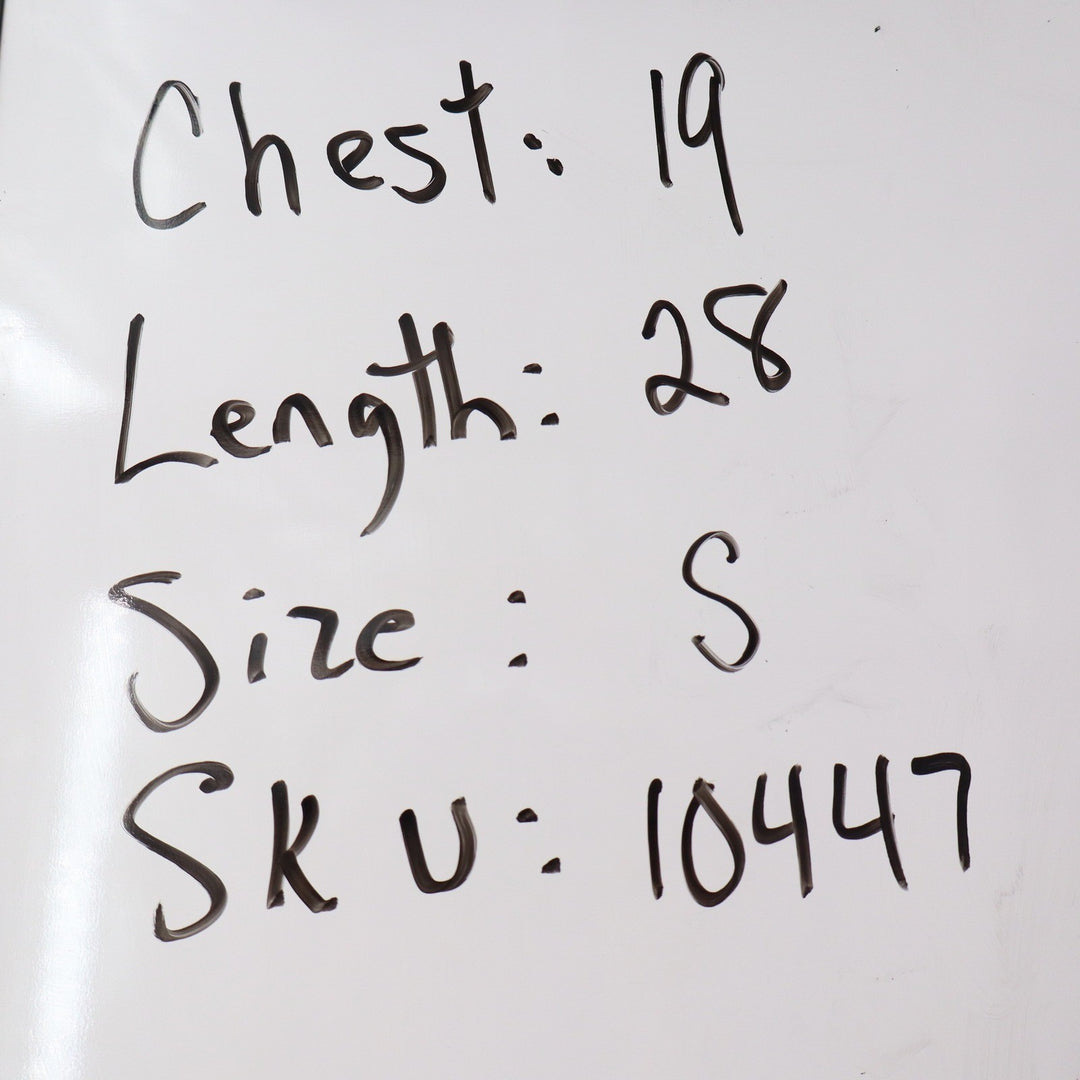 Chest: 19
Length: 28
Size: S
SKU: 10447